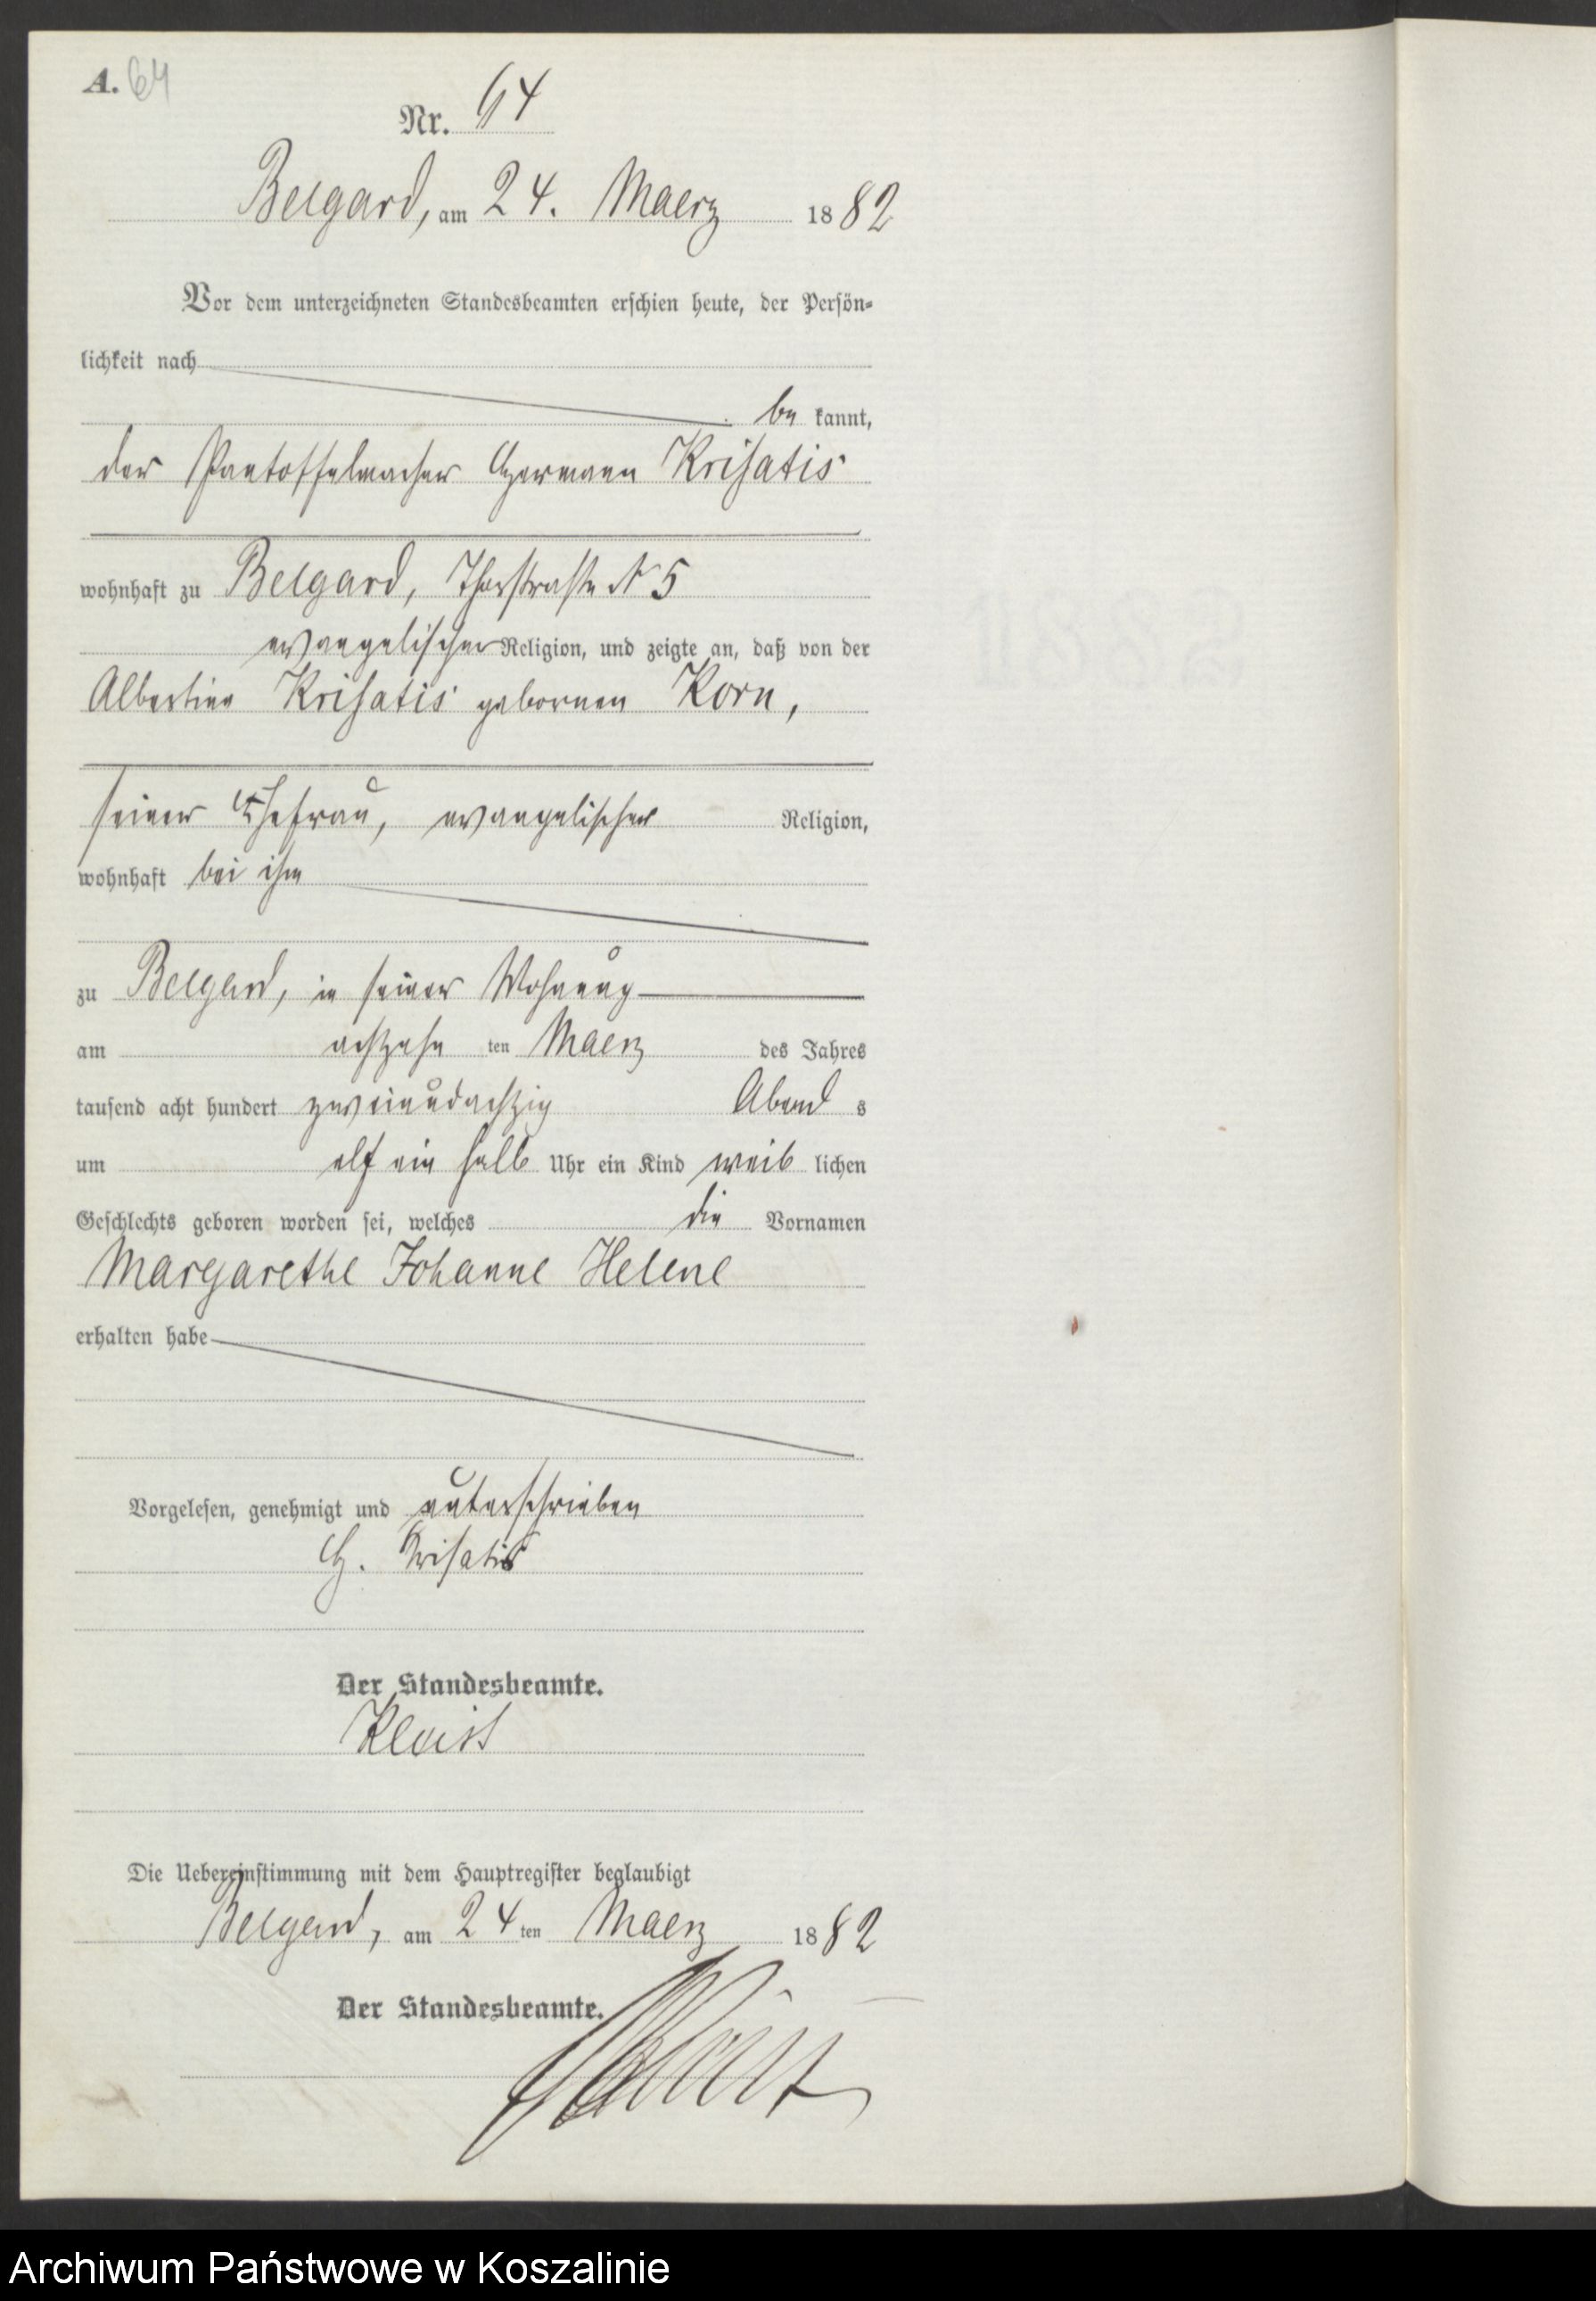 A. 64
Nr. 64
Belgard, am 24. Maerz 1882
Vor dem unterzeichneten Standesbeamten erschien heute, der Persön-
lichkeit nach
be kannt,
der Pantoffelmacher Hermann Krisatis
wohnhaft zu Belgard, Thorstraße № 5
evangelischer Religion, und zeigte an, daß von der
Albertine Krisatis gebornen Korn,
seiner Ehefrau, evangelischer Religion,
wohnhaft bei ihm
zu Belgard, in seiner Wohnung
am achtzehn ten Maerz des Jahres
tausend acht hundert zweiundachtzig Abend s
um elf ein halb Uhr ein Kind weib lichen
Geschlechts geboren worden sei, welches die Vornamen
Margarethe Johanne Helene
erhalten habe
Vorgelesen, genehmigt und unterschrieben
H. Krisatis
Der Standesbeamte.
Kleist
Die Uebereinstimmung mit dem Hauptregister beglaubigt
Belgard, am 24 ten Maerz 1882
Der Standesbeamte.
Kleist
Archiwum Państwowe w Koszalinie